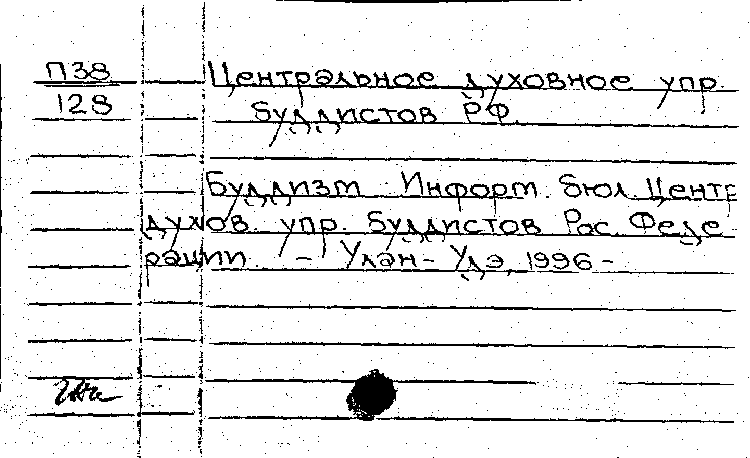 П38 Центральное духовное упр.
128 буддистов РФ.
Буддизм. Информ. бюл. Центр.
духов. упр. буддистов Рос. Феде-
рации. - Улан-Удэ, 1996 -